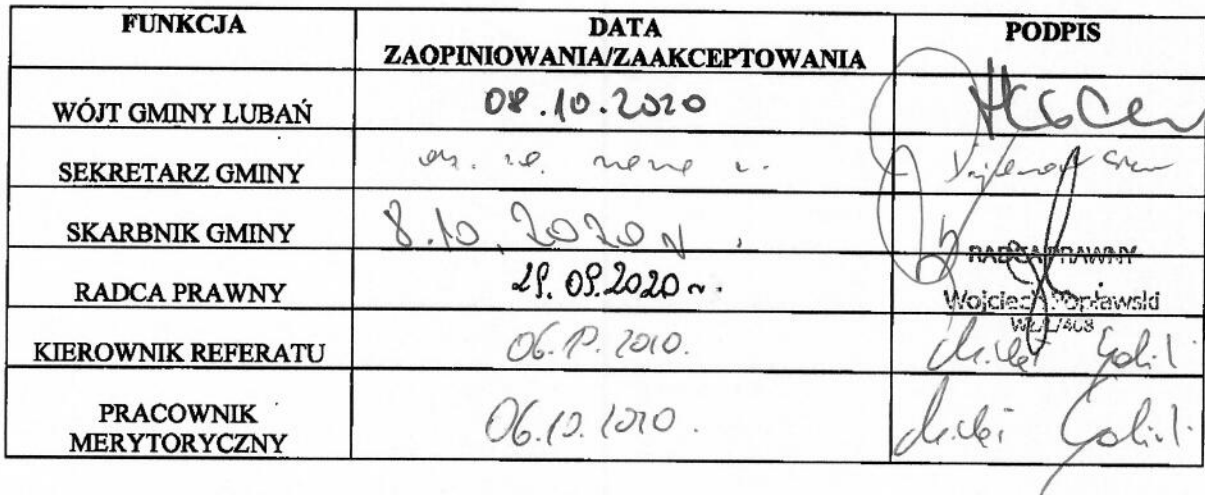 FUNKCJA
DATA
ZAOPINIOWANIA/ZAAKCEPTOWANIA
PODPIS
WÓJT GMINY LUBAŃ
08.10.2020
SEKRETARZ GMINY
SKARBNIK GMINY
8.10.2020 r.
RADCA PRAWNY
29.09.2020 r.
RADCA PRAWNY
Wojciech Popławski
KIEROWNIK REFERATU
06.10.2020.
PRACOWNIK
MERYTORYCZNY
06.10.2020.